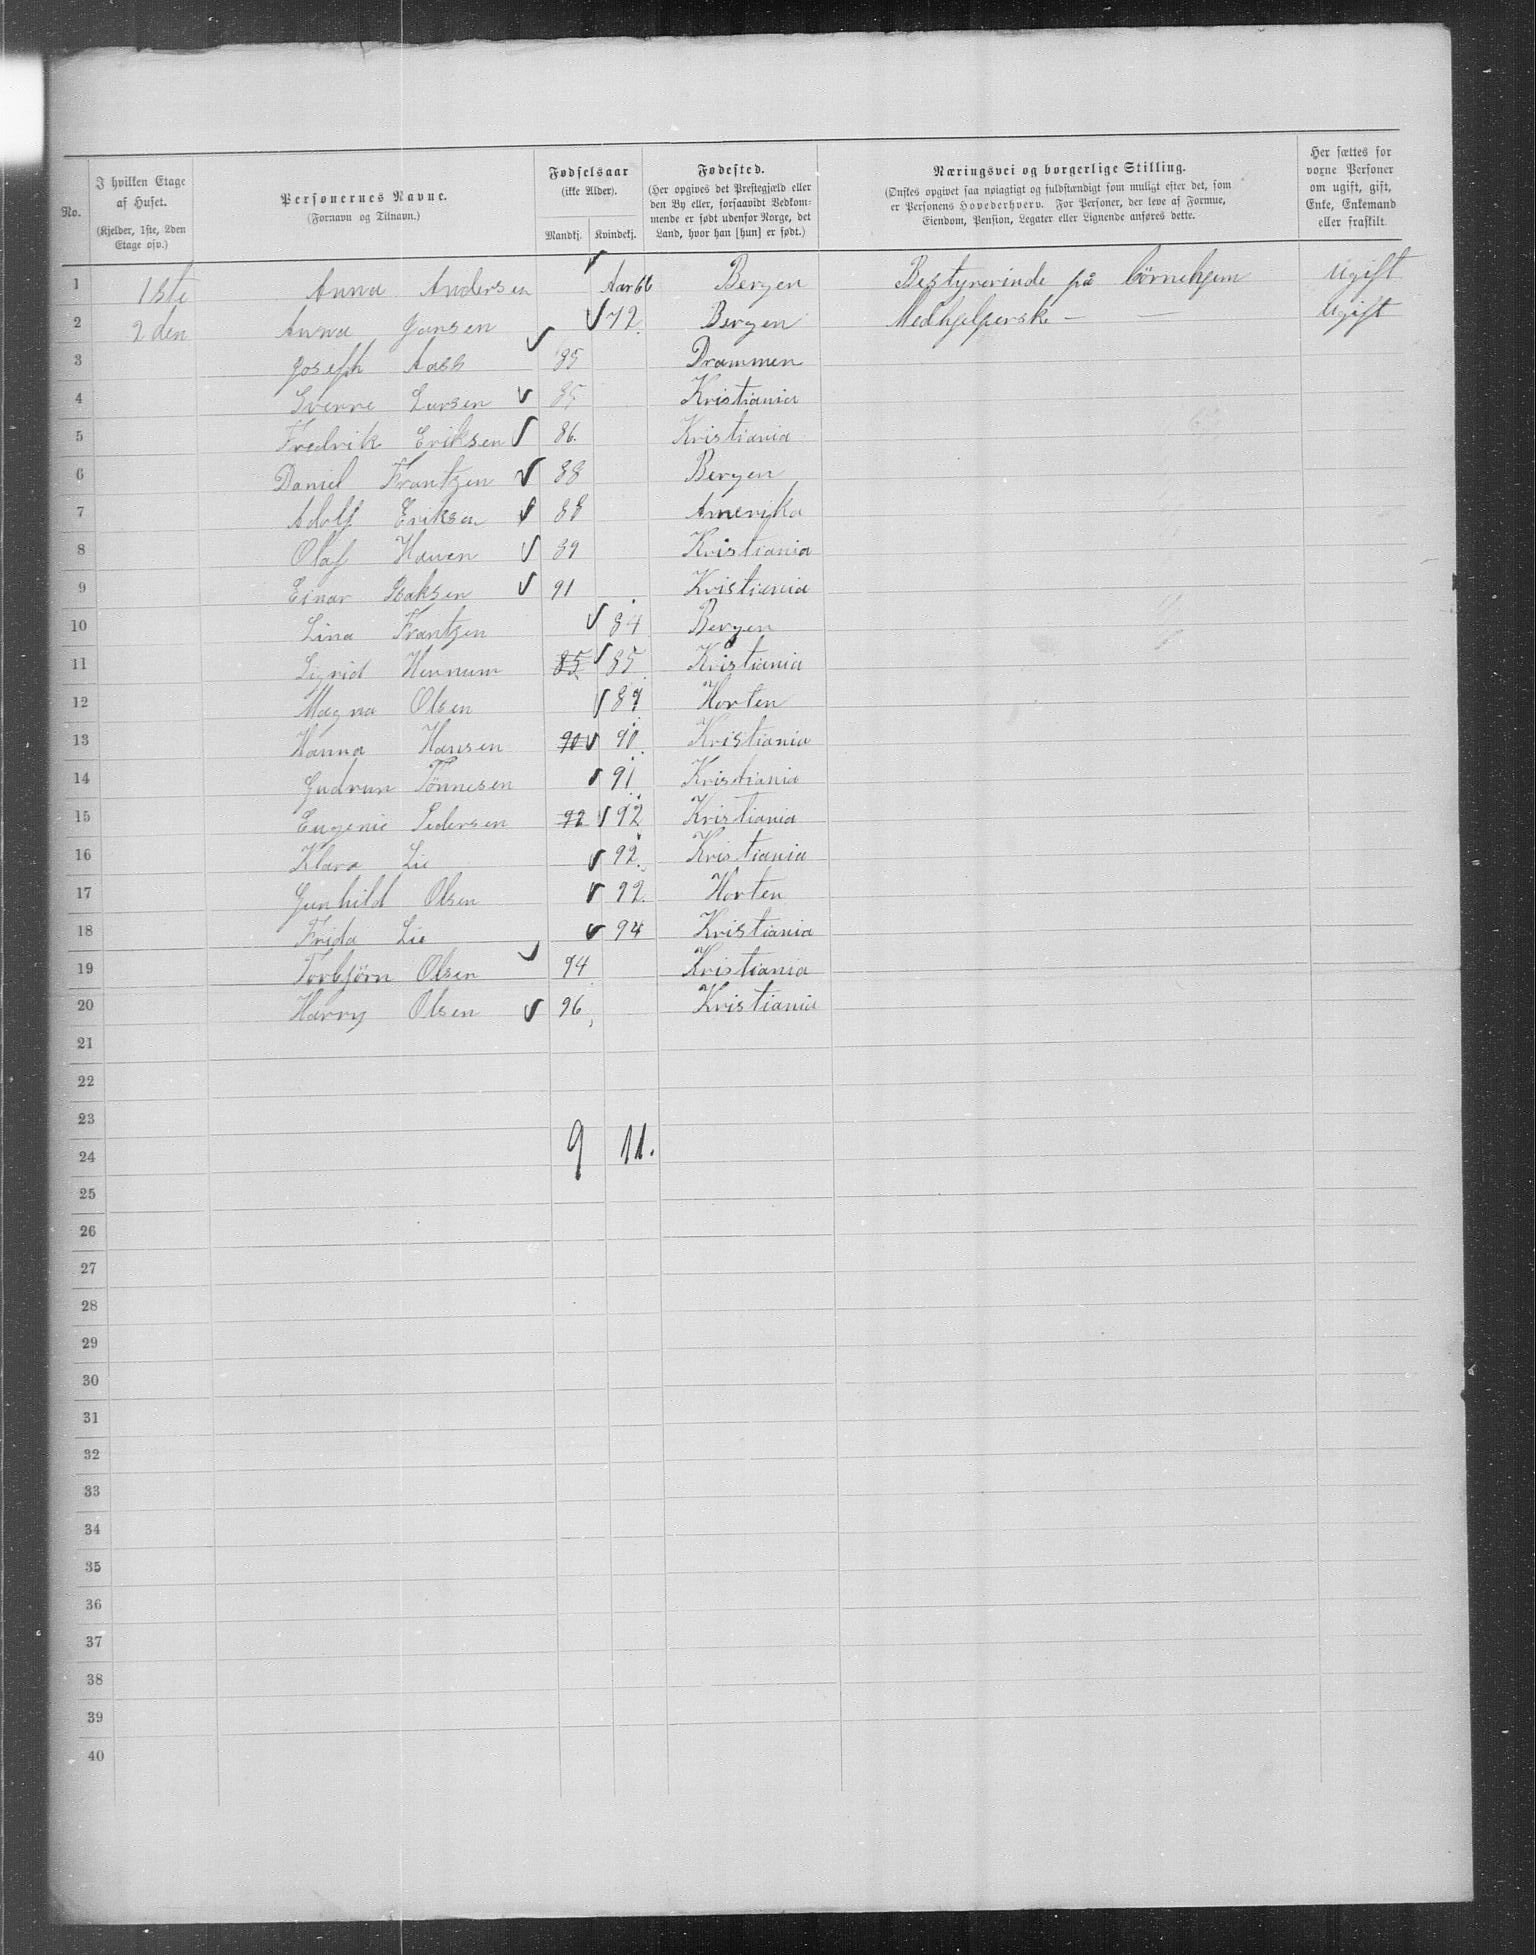 No.
I hvilken Etage af Huset.
(Kjelder, 1ste, 2den Etage osv.)
Personernes Navne.
(Fornavn og Tilnavn.)
Fødselsaar
(ikke Alder).
Mandkj. Kvindekj.
Fødested.
(Her opgives det Præstegjæld eller den By eller, forsaavidt Vedkommende er født udenfor Norge, det Land, hvor han [hun] er født.)
Næringsvei og borgerlige Stilling.
(Ønskes opgivet saa nøiagtigt og fuldstændigt som muligt efter det, som er Personens Hovederhverv. For Personer, der leve af Formue, Eiendom, Pension, Legater eller Lignende anføres dette.
Her sættes for voxne Personer om ugift, gift, Enke, Enkemand eller fraskilt.
1 1ste Anna Andersen Aar 66 Bergen Bestyrerinde på börnehjem Ugift
2 2den Anna Jansen 72. Bergen Medhjelperske — — Ugift
3 Joseph Aass 85 Drammen
4 Sverre Larsen 85 Kristiania
5 Fredrik Eriksen 86. Kristiania
6 Daniel Frantzen 88 Bergen
7 Adolf Eriksen 88 Amerika
8 Olaf Hauen 89 Kristiania
9 Einar Isaksen 91 Kristiania
10 Lina Frantzen 84 Bergen
11 Sigrid Hennum 85 85 Kristiania
12 Magna Olsen 89 Horten
13 Hanna Hansen 90 90. Kristiania
14 Gudrun Tönnesen 91 Kristiania
15 Eugenie Pedersen 92 92 Kristiania
16 Klara Lie 92. Kristiania
17 Gunhild Olsen 92. Horten
18 Frida Lie 94 Kristiania
19 Torbjörn Olsen 94 Kristiania
20 Harry Olsen 96 Kristiania
21
22
23
9 11.
24
25
26
27
28
29
30
31
32
33
34
35
36
37
38
39
40